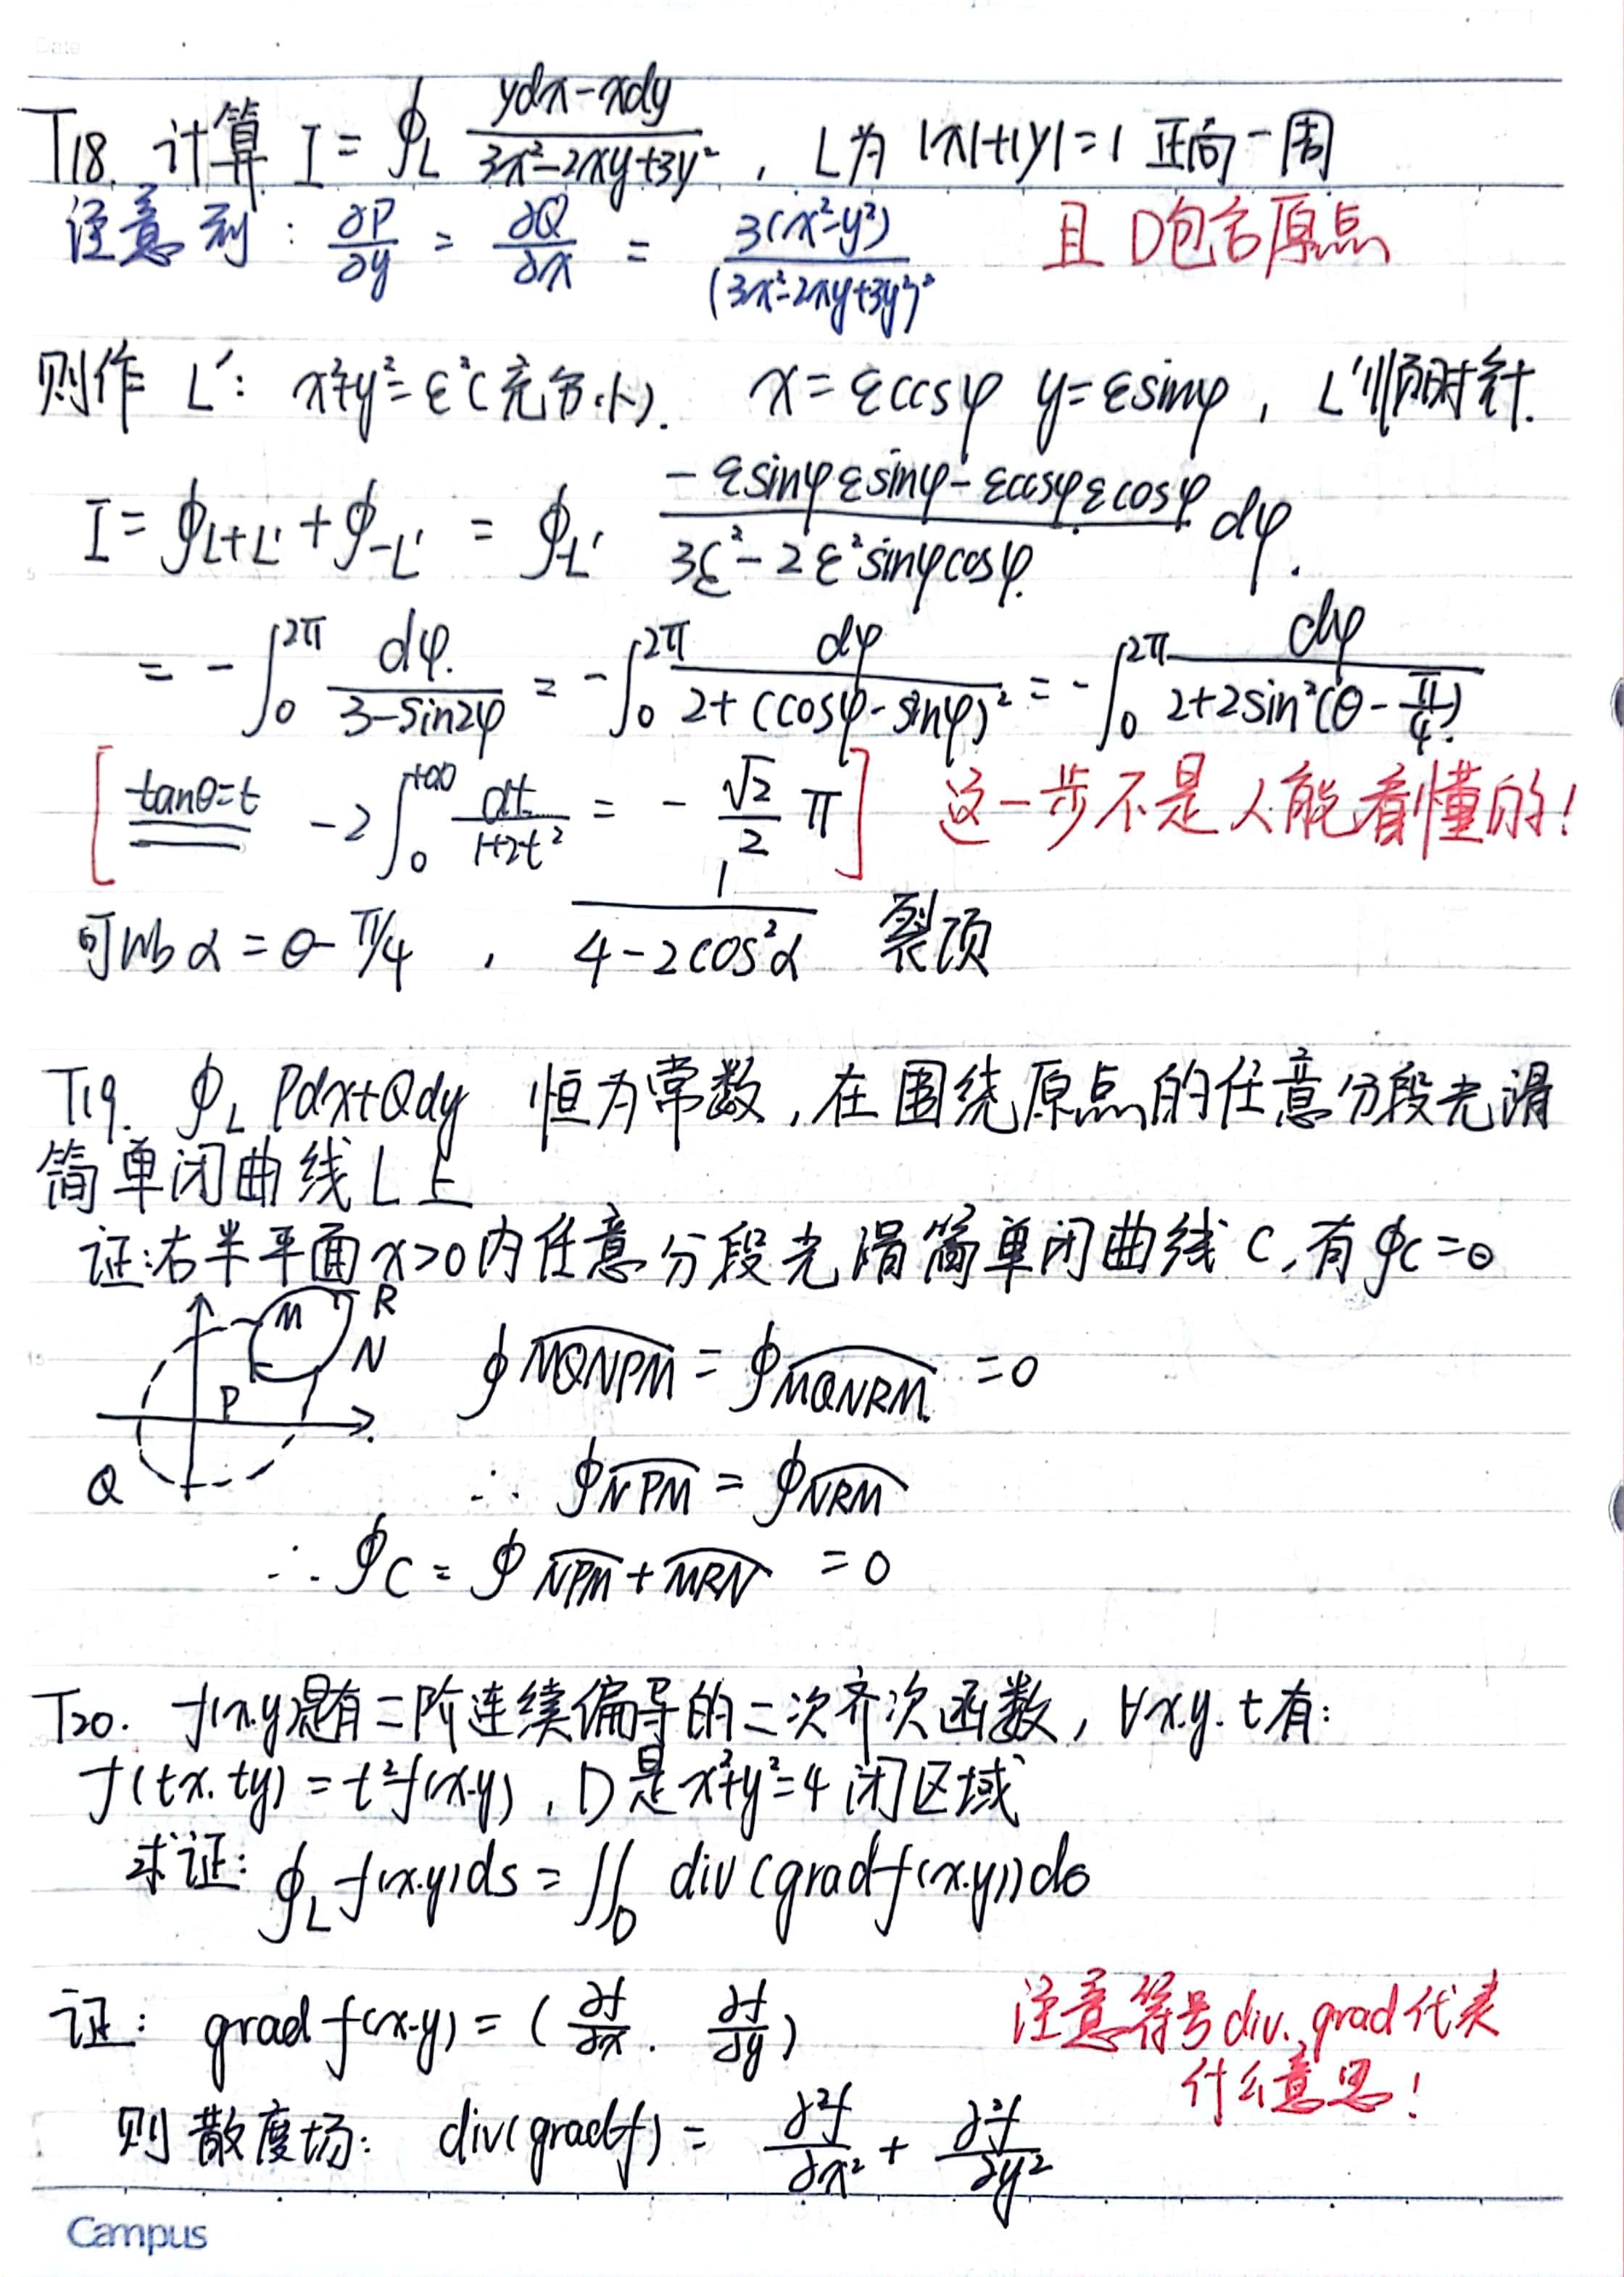 Date
T18. 计算 I = ∮_L (ydx-xdy)/(3x²-2xy+3y²) , L为 |x|+|y|=1 正向一周
注意到: ∂P/∂y = ∂Q/∂x = 3(x²-y²)/(3x²-2xy+3y²)² 且 D包含原点
则作 L': x²+y²=ε²(充分小). x=εcosφ y=εsinφ, L'顺时针.
I = ∮_{L+L'} + ∮_{-L'} = ∮_{-L'} (-εsinφ εsinφ - εcosφ εcosφ)/(3ε²-2ε²sinφcosφ) dφ.
= -∫₀^{2π} dφ/(3-sin2φ) = -∫₀^{2π} dφ/(2+(cosφ-sinφ)²) = -∫₀^{2π} dφ/(2+2sin²(θ-π/4))
[ tanθ=t -2∫₀^{+∞} dt/(1+2t²) = -√2/2 π ] 这一步不是人能看懂的!
可以令 α=θ-π/4 , 1/(4-2cos²α) 裂项
T19. ∮_L Pdx+Qdy 恒为常数,在围绕原点的任意分段光滑
简单闭曲线L上
证:右半平面x>0内任意分段光滑简单闭曲线C,有∮c=0
M R
N
P
Q
∮MQNPM = ∮MQNRM =0
∴ ∮NPM = ∮NRM
∴ ∮C = ∮NPM+MRN =0
T20. f(x.y)是有二阶连续偏导的二次齐次函数, ∀x.y.t有:
f(tx.ty)=t²f(x.y), D是x²+y²=4闭区域
求证: ∮_L f(x.y)ds = ∬_D div(gradf(x.y))dσ
证: grad f(x.y) = (∂f/∂x . ∂f/∂y) 注意符号div.grad代表
什么意思!
则散度场: div(gradf) = ∂²f/∂x² + ∂²f/∂y²
Campus